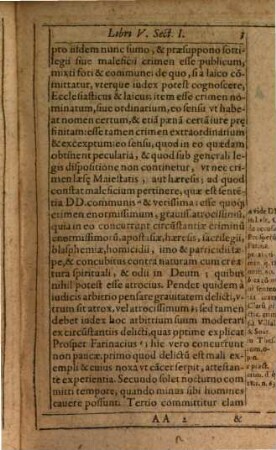 Libri V. Sect. I. 3
pro ijsdem nunc sumo, & præsuppono sorti-
legij siue maleficij crimen esse publicum,
mixti fori & communei de quo, si à laico cõ-
mittatur, vterque iudex potest cognoscere,
Ecclesiasticus & laicus: item esse crimen no-
minatum, siue ordinarium, eo sensu vt habe-
at nomen certum, & etiã pœnã certã iure prę
finitam: esse tamen crimen extraordinarium
& excęptum: eo sensu, quod in eo quædam
obtinent pecularia, & quod sub generali le-
gis dispositione non contineatur, vt nec cri-
men læsę Maiestatis, aut hæresis: ad quod
constat maleficium pertinere, quæ est sentē-
tia DD. communis & verissima: esse quoq;
crimen enormissimum, grauiss. atrocissimũ,
quia in eo concurrunt circũstantiæ criminũ
enormissimorũ, apostasiæ, hæresis, sacrilegij,
blasphemiæ, homicidij, imo & parricidij sæ-
pe, & concubitus contra naturam cum crea
tura spirituali, & odij in Deum; quibus
nihil potest esse atrocius. Pendet quidem à
iudicis arbitrio pensare grauitatem delicti, v-
trum sit atrox, vel atrocissimum: sed tamen
debet iudex hoc arbitrium suum moderari
ex circũstantijs delicti, quas optime explicat
Prosper Farinacius: hic vero concurrunt
non paucæ. primo quod delictũ est mali ex-
empli & cuius noxa vt cãcer serpit, attestan-
te experientia. Secundo solet nocturno com
mitti tempore, quando minus sibi homines
cauere possunt. Tertio committitur clam
AA 2 &